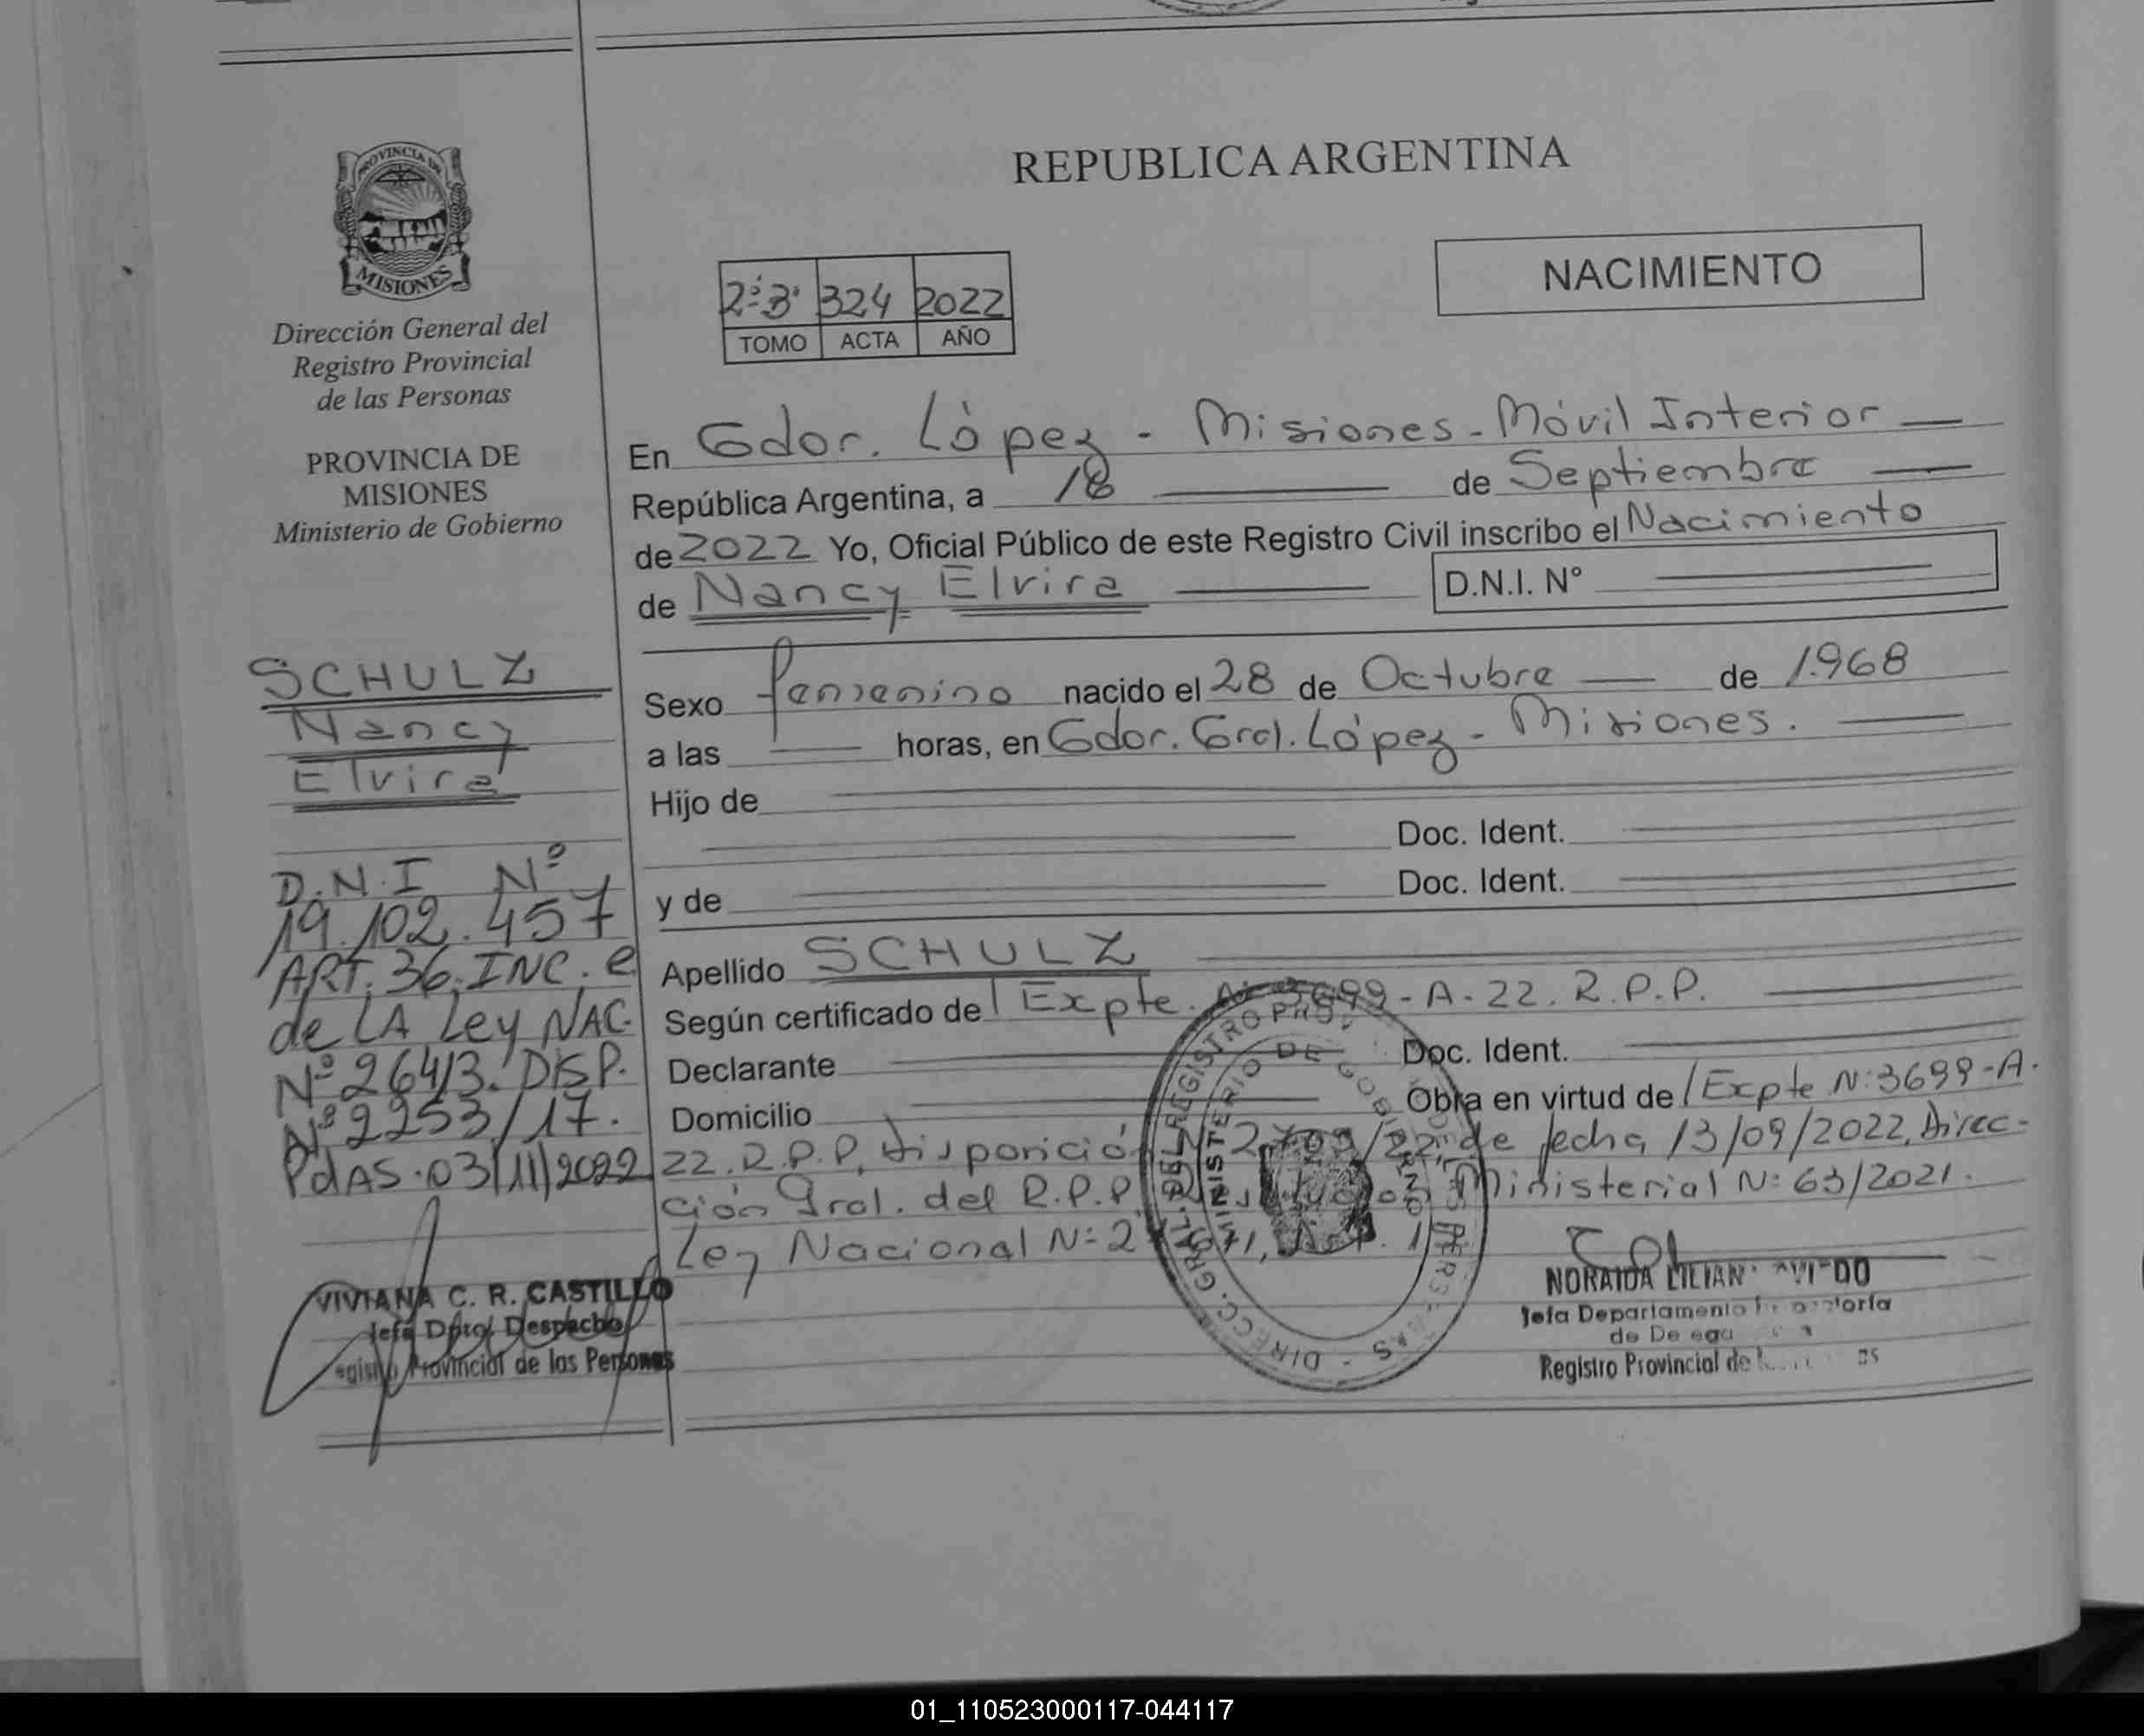 REPUBLICA ARGENTINA
NACIMIENTO
PROVINCIA DE
MISIONES
Dirección General del
Registro Provincial
de las Personas
PROVINCIA DE
MISIONES
Ministerio de Gobierno
2º B' 324 2022
TOMO ACTA AÑO
En Gdor. López - Misiones - Móvil Interior
República Argentina, a 18 de Septiembre
de 2022 Yo, Oficial Público de este Registro Civil inscribo el Nacimiento
de Nancy Elvira D.N.I. Nº
Sexo femenino nacido el 28 de Octubre de 1.968
a las horas, en Gdor. Gral. López - Misiones.
Hijo de
Doc. Ident.
y de Doc. Ident.
Apellido SCHULZ
Según certificado de l Expte. 3699-A-22. R.P.P.
Declarante Doc. Ident.
Domicilio Obra en virtud de l Expte Nº 3699-A.
22. R.P.P, Disposición Nº 2709/22, de fecha 13/09/2022, Direc-
ción Gral. del R.P.P. Ministerial Nº 63/2021.
Ley Nacional Nº
SCHULZ
Nancy
Elvira
D.N.I Nº
19.102.457
ART. 36. INC. e
de LA Ley NAC.
Nº 26413. DISP.
Nº 2253/17.
PdAS. 03/11/2022
VIVIANA C. R. CASTILLO
Jefa Dpto. Despacho
Registro Provincial de las Personas
DIRECC. GRAL. DEL REGISTRO PROV. DE LAS PERSONAS
MINISTERIO DE GOBIERNO
NORAIDA LILIANA
Jefa Departamento
Registro Provincial de
01_110523000117-044117